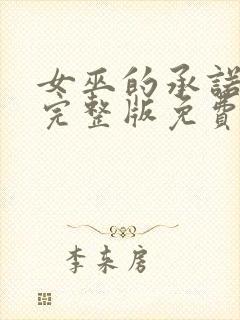 女巫的承諾
完整版免費
李来房